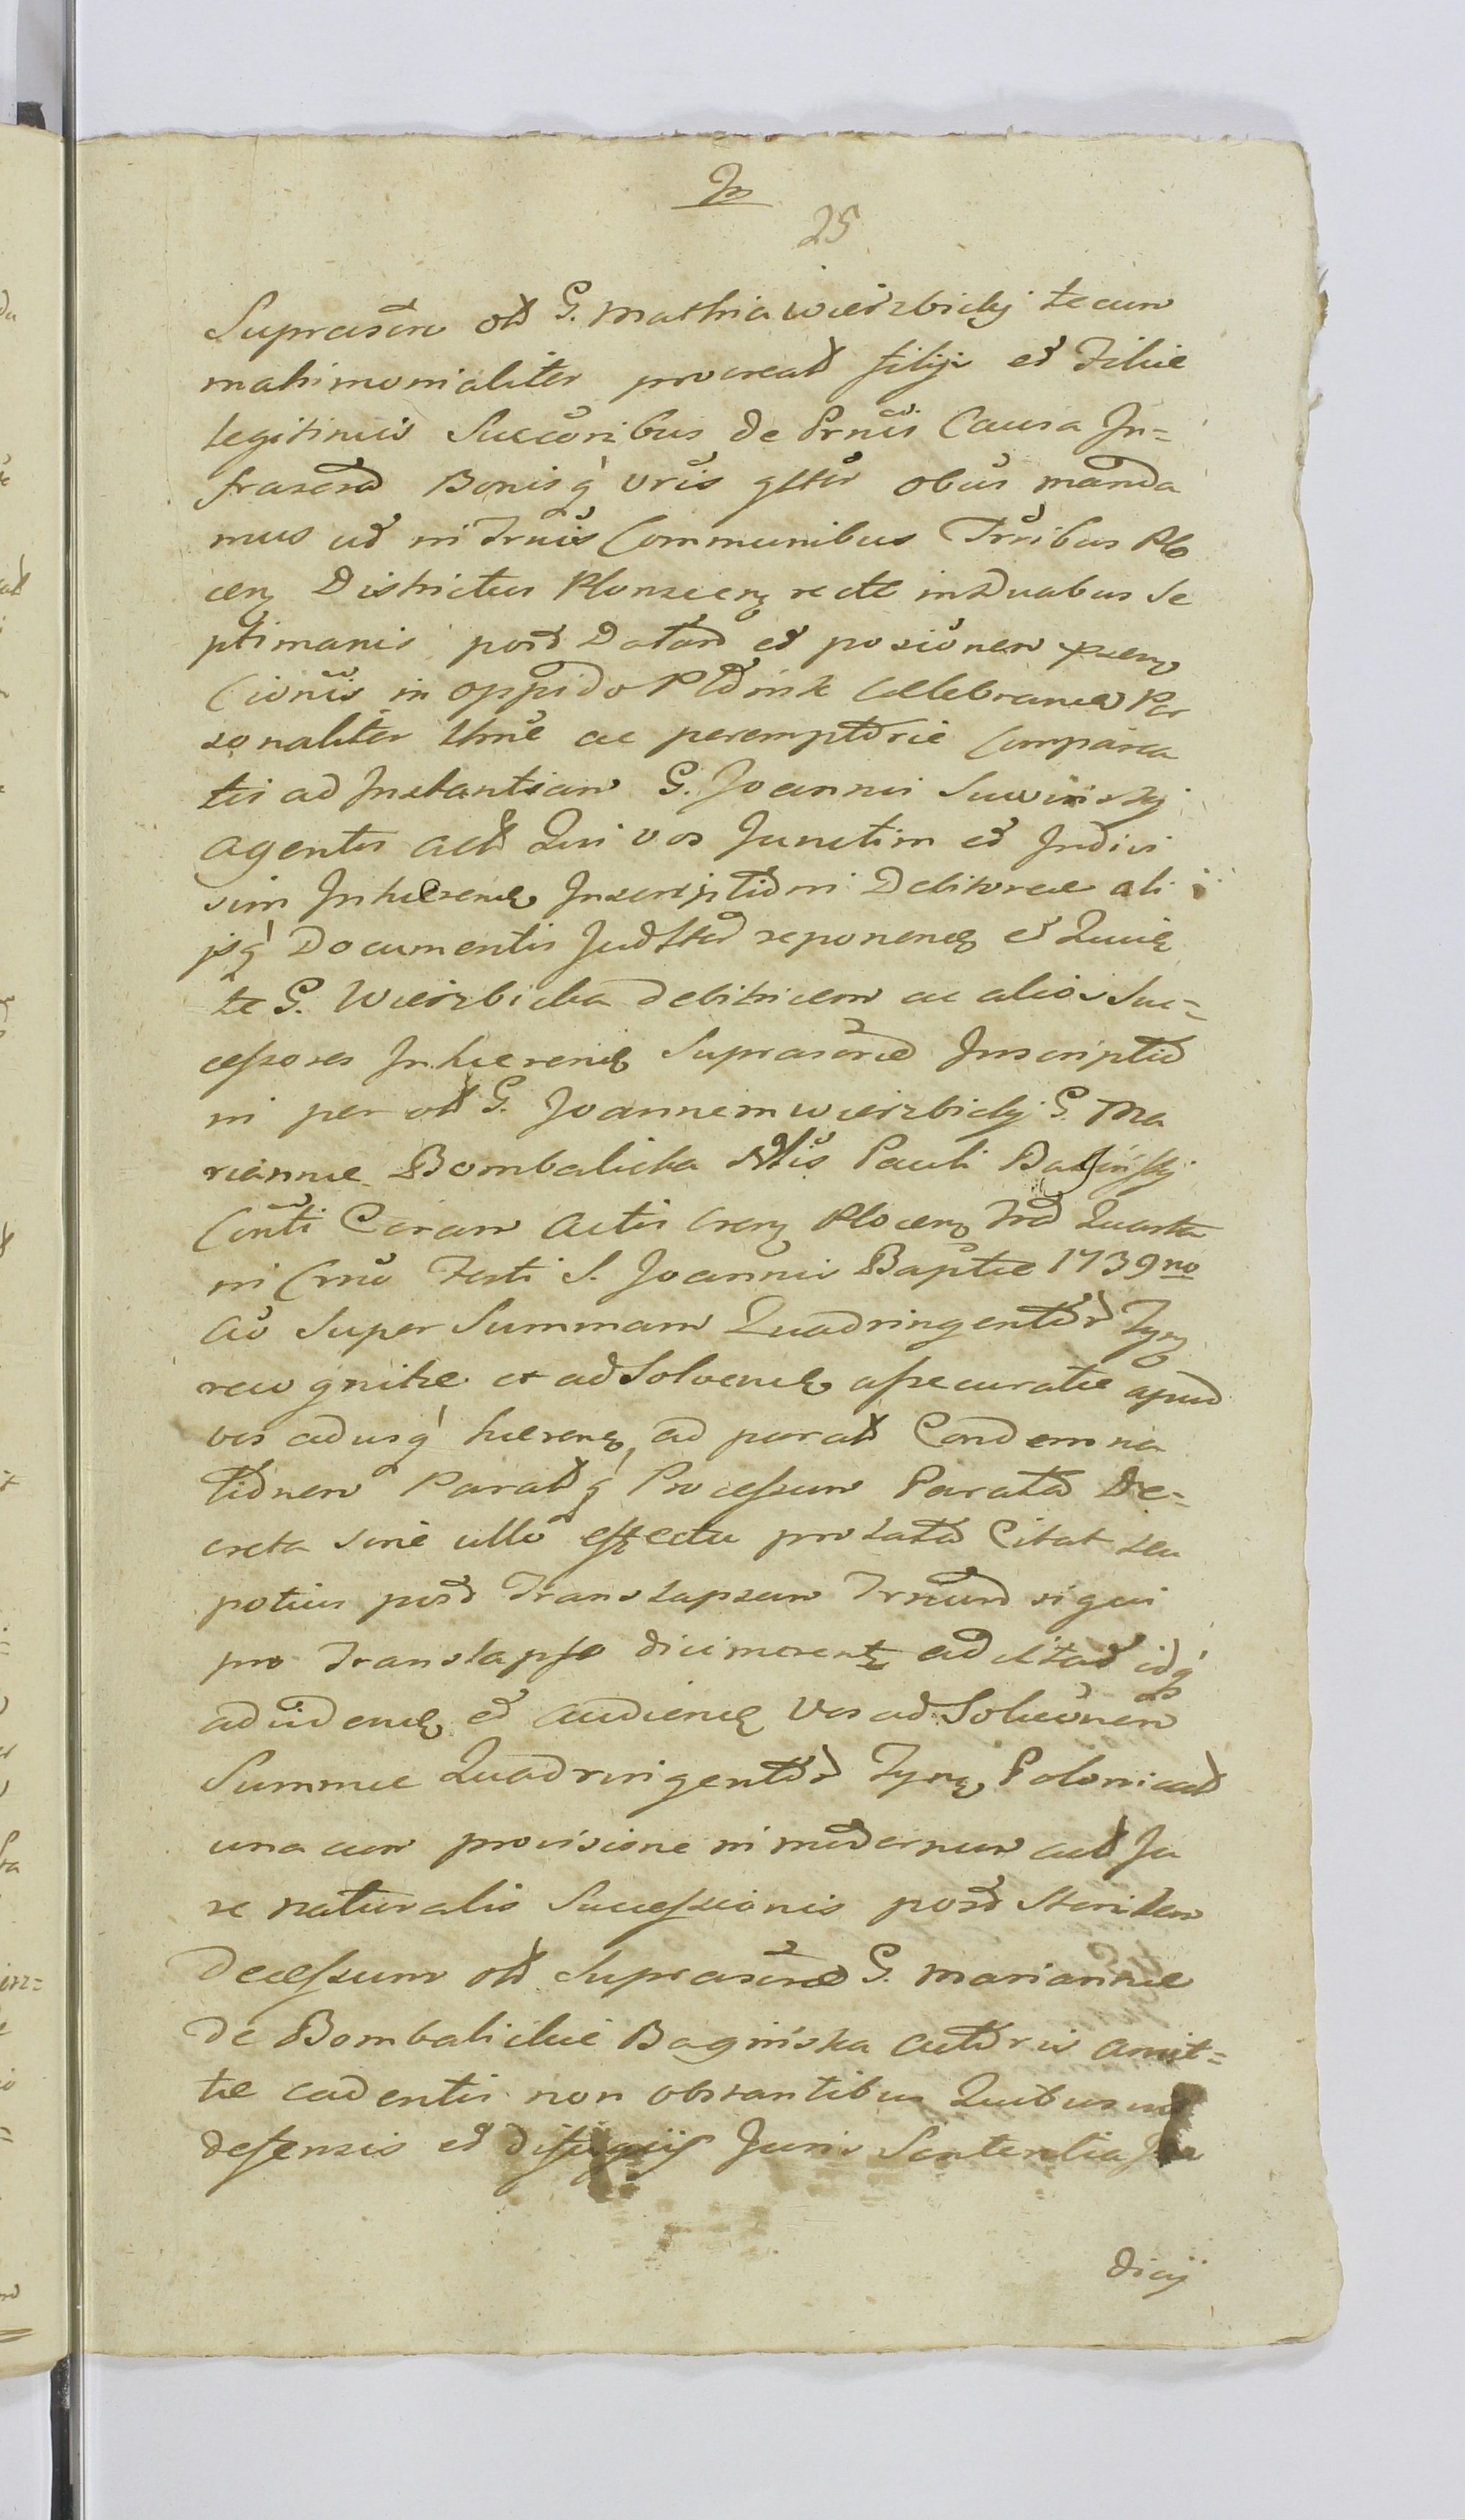 25
Suprascrū old G. Mathia Wierzbicky tecum
matrimonialiter procreatd filijs et Filiae
legitimis Succoribus de Prnūs Causa In=
frascrod Bonisq́ vris gltūr obūs manda
mus ut in Trnūs Communibus Trnibus Plo
cen Districtus Plonscen recte in Duabus Se
ptimanis post Datam et posiōnem pūen
Cionūs in oppido Plōnsk Celebrand Per
sonaliter thnē ac peremptōrie Comparea
tis ad Instantiam G. Joannis Suwinsky
Agentis actd Qui vos Junctim et Indivi
sim Inhaerend Inscriptiōni Debitoreae ali
jsq́ Documentis Juditer reponend et Quid
te G. Wierzbicka debitricem ac alios Suc=
cessores Inhaerend Suprascrae Inscriptiō
ni per old G. Joannem Wierzbicky G. Ma
riannae Bombalicka Pauli Baginsky
Conti Coram Actis Cren Plocen Frd Quarta
in Crnō Festi S. Joannis Baptae 1739no
Aō Super Summam Quadringentōr Fyn
recognitae et ad Solvend assecuratae apud
vos adusq́ haeren, ad paratd Condemna
tiōnem Paratdq́ Processum Paratd De=
creta sine ullo effectu prolatd Citat seu
potius post Translapsum si qui
pro Translapso dicimerent ad citad idq́
ad videnđ et audienđ Vos ad Soluōnem
Summae Quadringentōr Fyn, Polonicald
una cum provisione in modernum actd Ju
re naturalis Successionis post Sterilem
Decessum old Suprascrae G. Mariannae
de Bombalickie Baginska Actōris Amit=
tae cadentis non obstantibus Quibusvis
defensis et diffugijs Juris Sententia
dicij